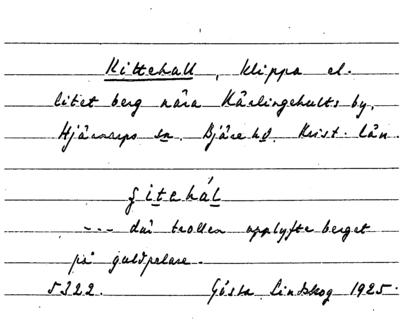 Kittehall, klippa el.
litet berg nära Kärlingehults by,
Hjärnarps sn. Bjäre hd. Krist. län.
gitehál
--- där trollen upplyfte berget
på guldpelare.
5322. Gösta Lindskog 1925.